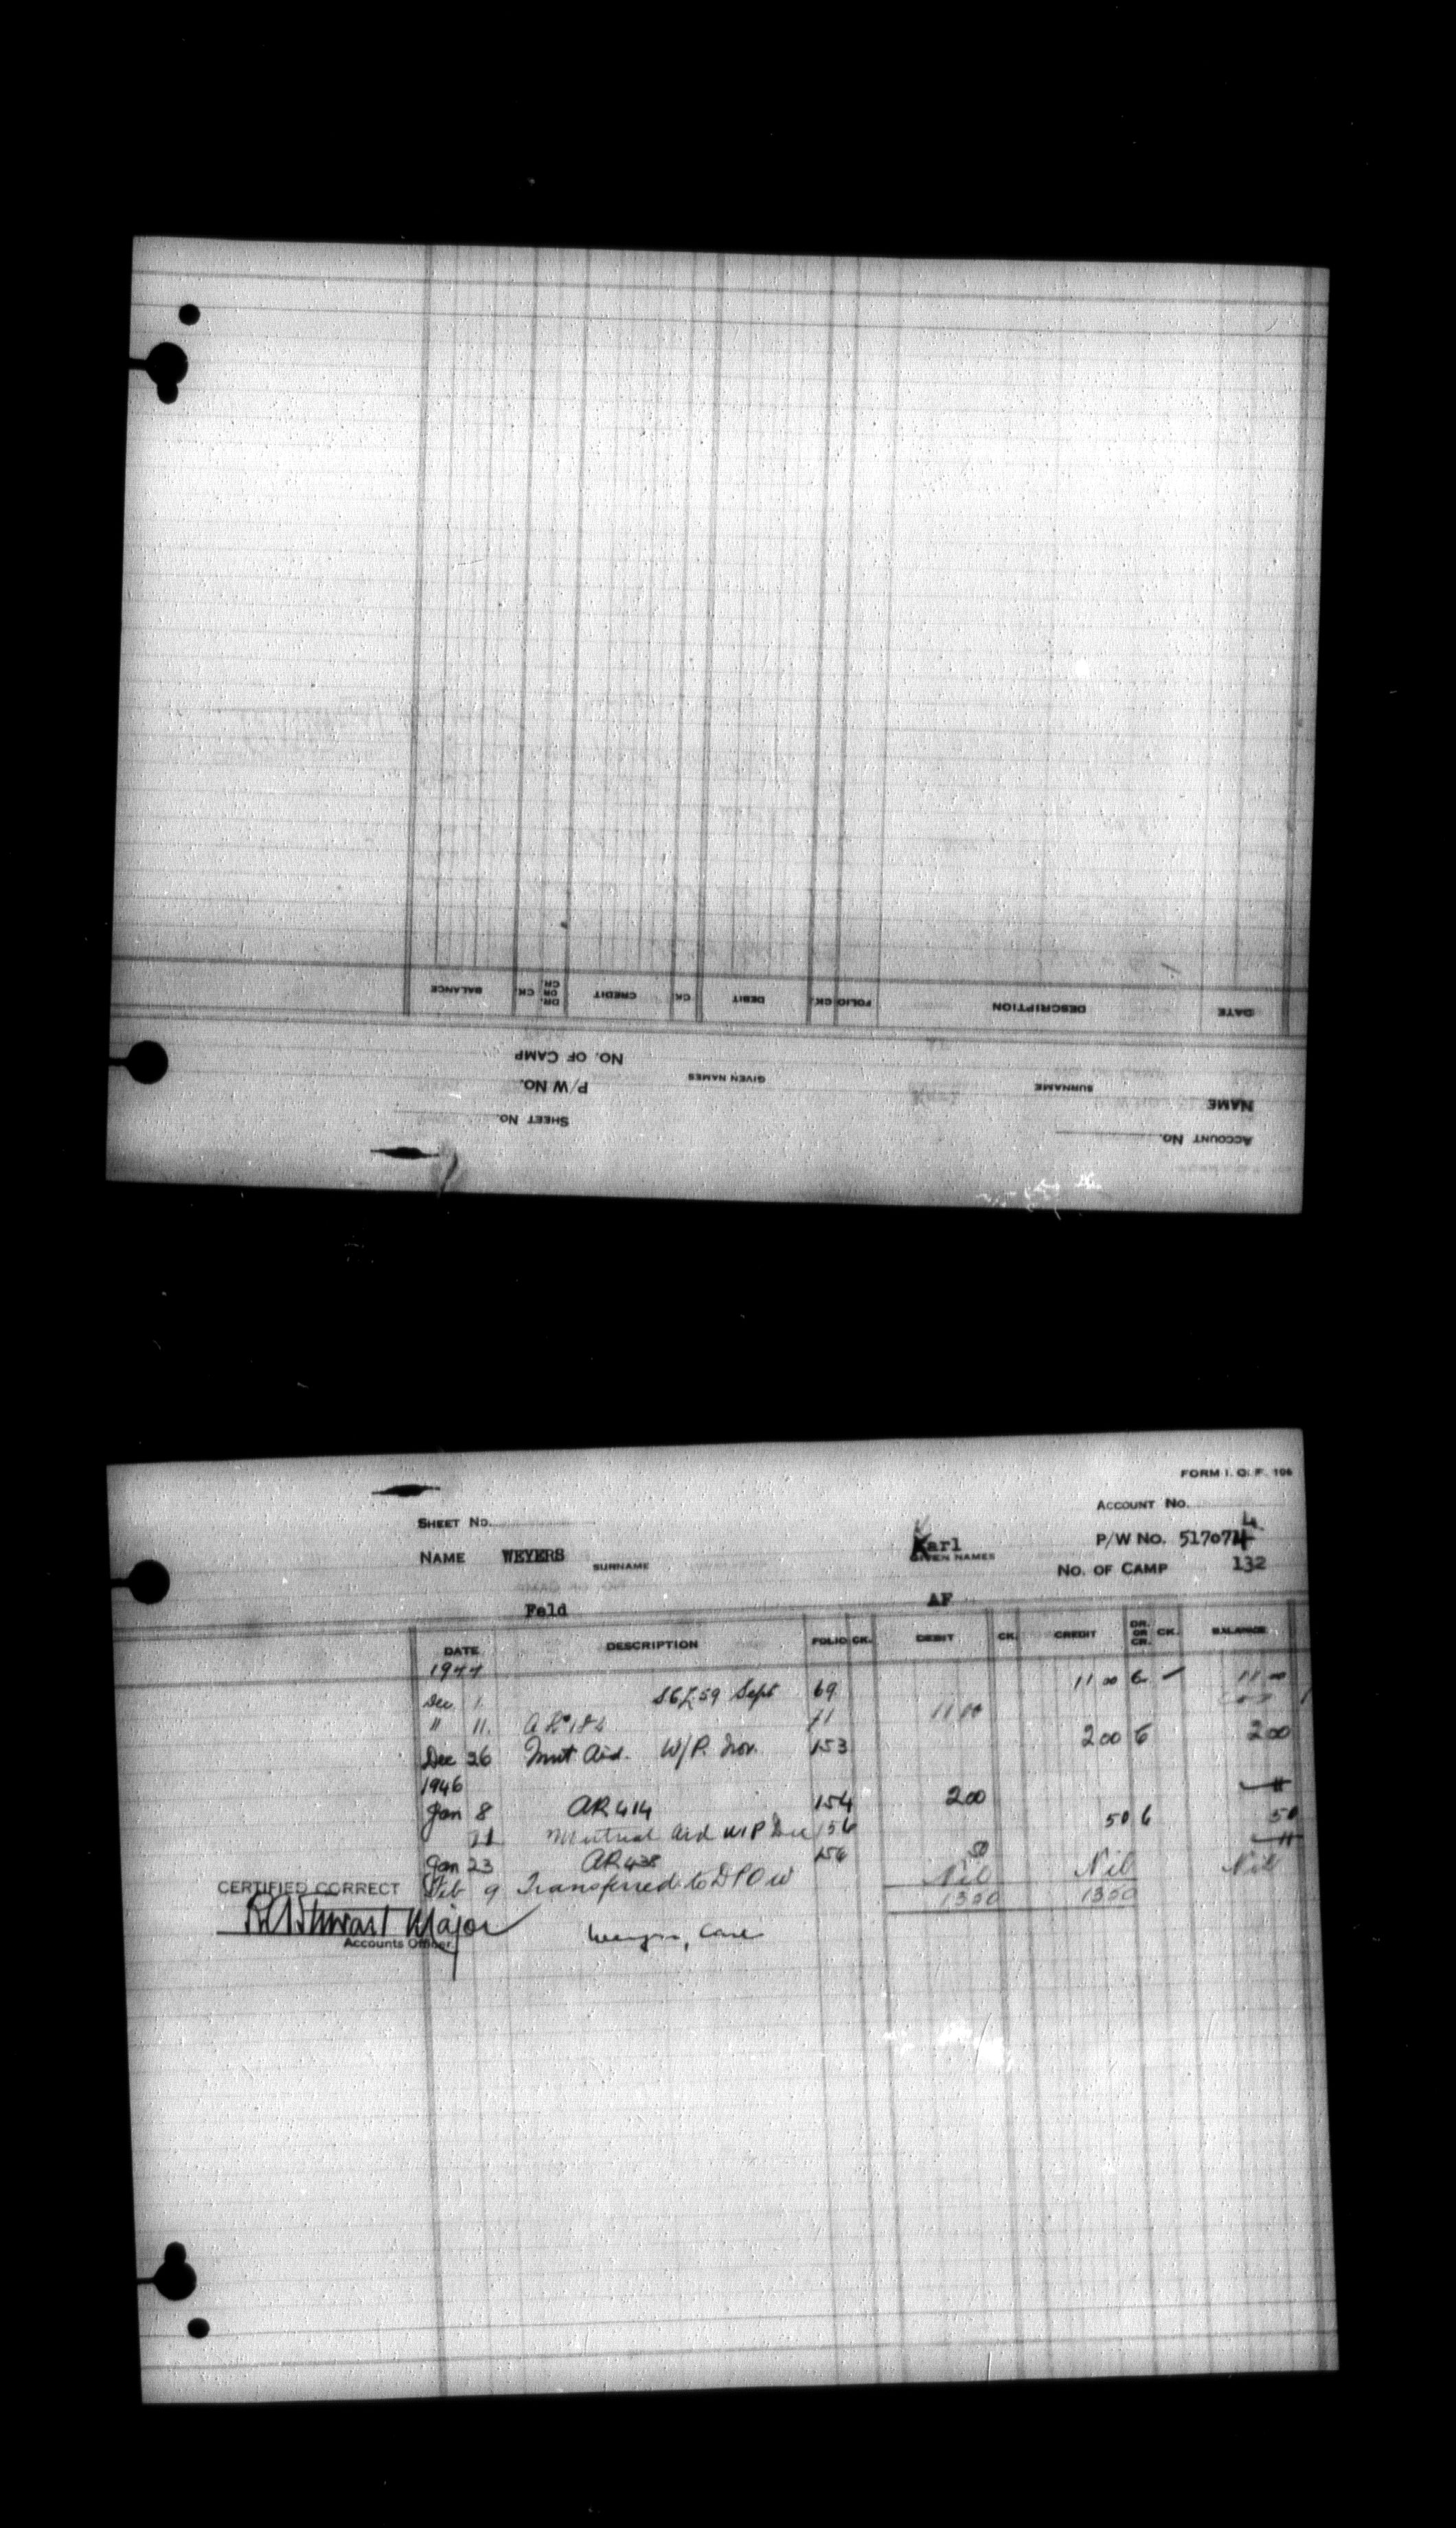 BALANCE CK. DR. OR CR. CREDIT CK. DEBIT CK. FOLIO DESCRIPTION DATE
NO. OF CAMP
P/W No. GIVEN NAMES SURNAME
NAME
SHEET No. ACCOUNT No.
FORM I. O. F. 106
ACCOUNT No.
SHEET No.
P/W No. 517074 4
NAME WEYERS SURNAME Karl GIVEN NAMES
NO. OF CAMP 132
Feld AF
DATE DESCRIPTION FOLIO CK. DEBIT CK. CREDIT DR. OR CR. CK. BALANCE
1944
Dec 1 Sept 69 11 00 11 00
" 11. 71 11 00
Dec 26 Mut Aid. W/P. Nov. 153 2 00 2 00
1946
Jan 8 AR 414 154 2 00
Mutual Aid W/P Dec 156 50 50
Jan 23 AR 438 156 50
Feb 9 Transferred to DPOW Nil Nil Nil
13 50 13 50
CERTIFIED CORRECT
Major
Accounts Officer